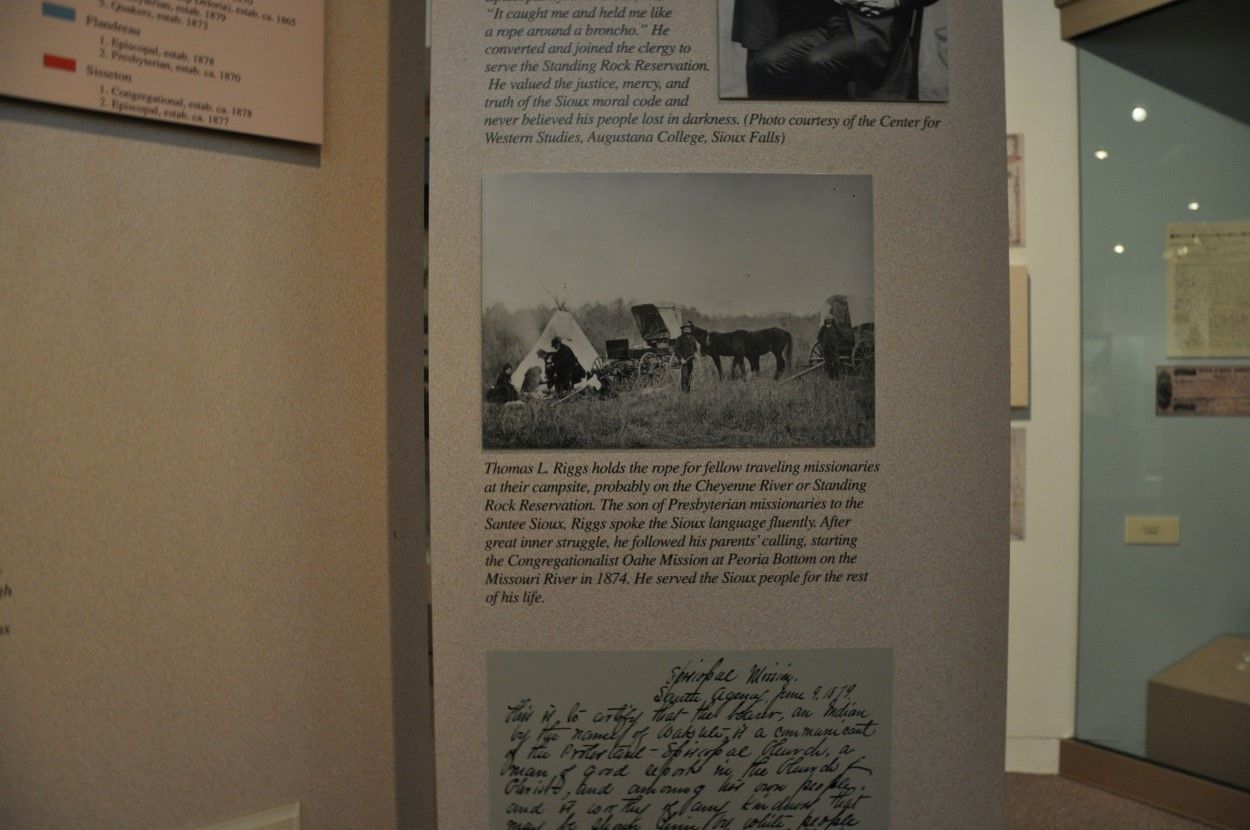 5. Quakers, estab. ca. 1865
estab. 1879
estab. 1873
Flandreau
1. Episcopal, estab. 1878
2. Presbyterian, estab. ca. 1870
Sisseton
1. Congregational, estab. ca. 1878
2. Episcopal, estab. ca. 1877
"It caught me and held me like
a rope around a broncho." He
converted and joined the clergy to
serve the Standing Rock Reservation.
He valued the justice, mercy, and
truth of the Sioux moral code and
never believed his people lost in darkness. (Photo courtesy of the Center for
Western Studies, Augustana College, Sioux Falls)
Thomas L. Riggs holds the rope for fellow traveling missionaries
at their campsite, probably on the Cheyenne River or Standing
Rock Reservation. The son of Presbyterian missionaries to the
Santee Sioux, Riggs spoke the Sioux language fluently. After
great inner struggle, he followed his parents' calling, starting
the Congregationalist Oahe Mission at Peoria Bottom on the
Missouri River in 1874. He served the Sioux people for the rest
of his life.
Episcopal Mission.
Agency, June 9, 1879.
This is to certify that the bearer, an Indian
by the name of is a communicant
of the Protestant-Episcopal Church, a
man of good report in the Church of
Christ, and among his own people,
and is worthy of any kindness that
may be shown him by white people